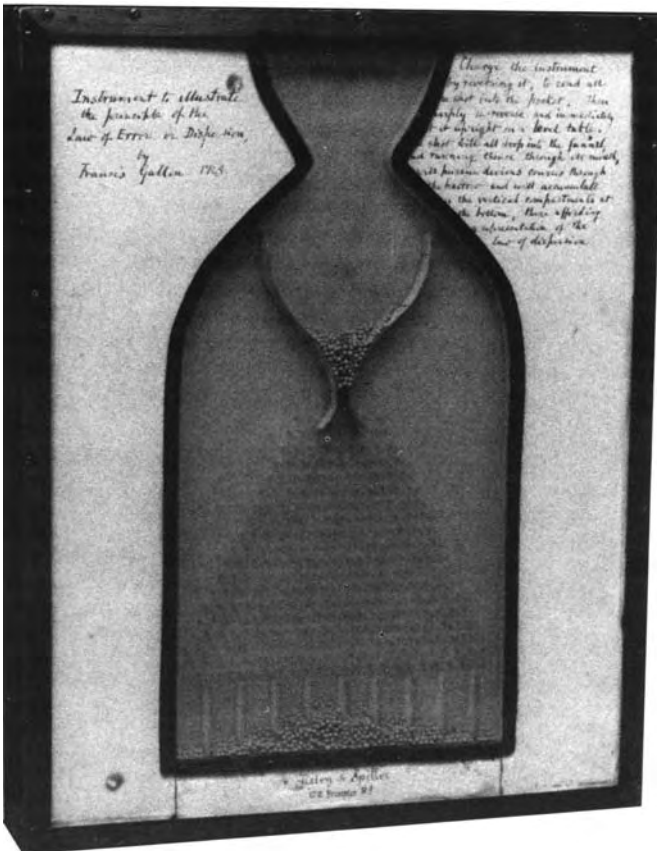 Instrument to illustrate
the principle of the
Law of Error or Dispersion,
by
Francis Galton
Charge the instrument
by reversing it, to send all
shot into the pocket. Then
sharply re-reverse and immediately
set it upright on a level table.
shot will all drop into the funnel,
and running thence through its mouth,
will pursue devious courses through
the harrow and will accumulate
in the vertical compartments at
the bottom, there affording
representation of the
law of dispersion
Tisley & Spiller